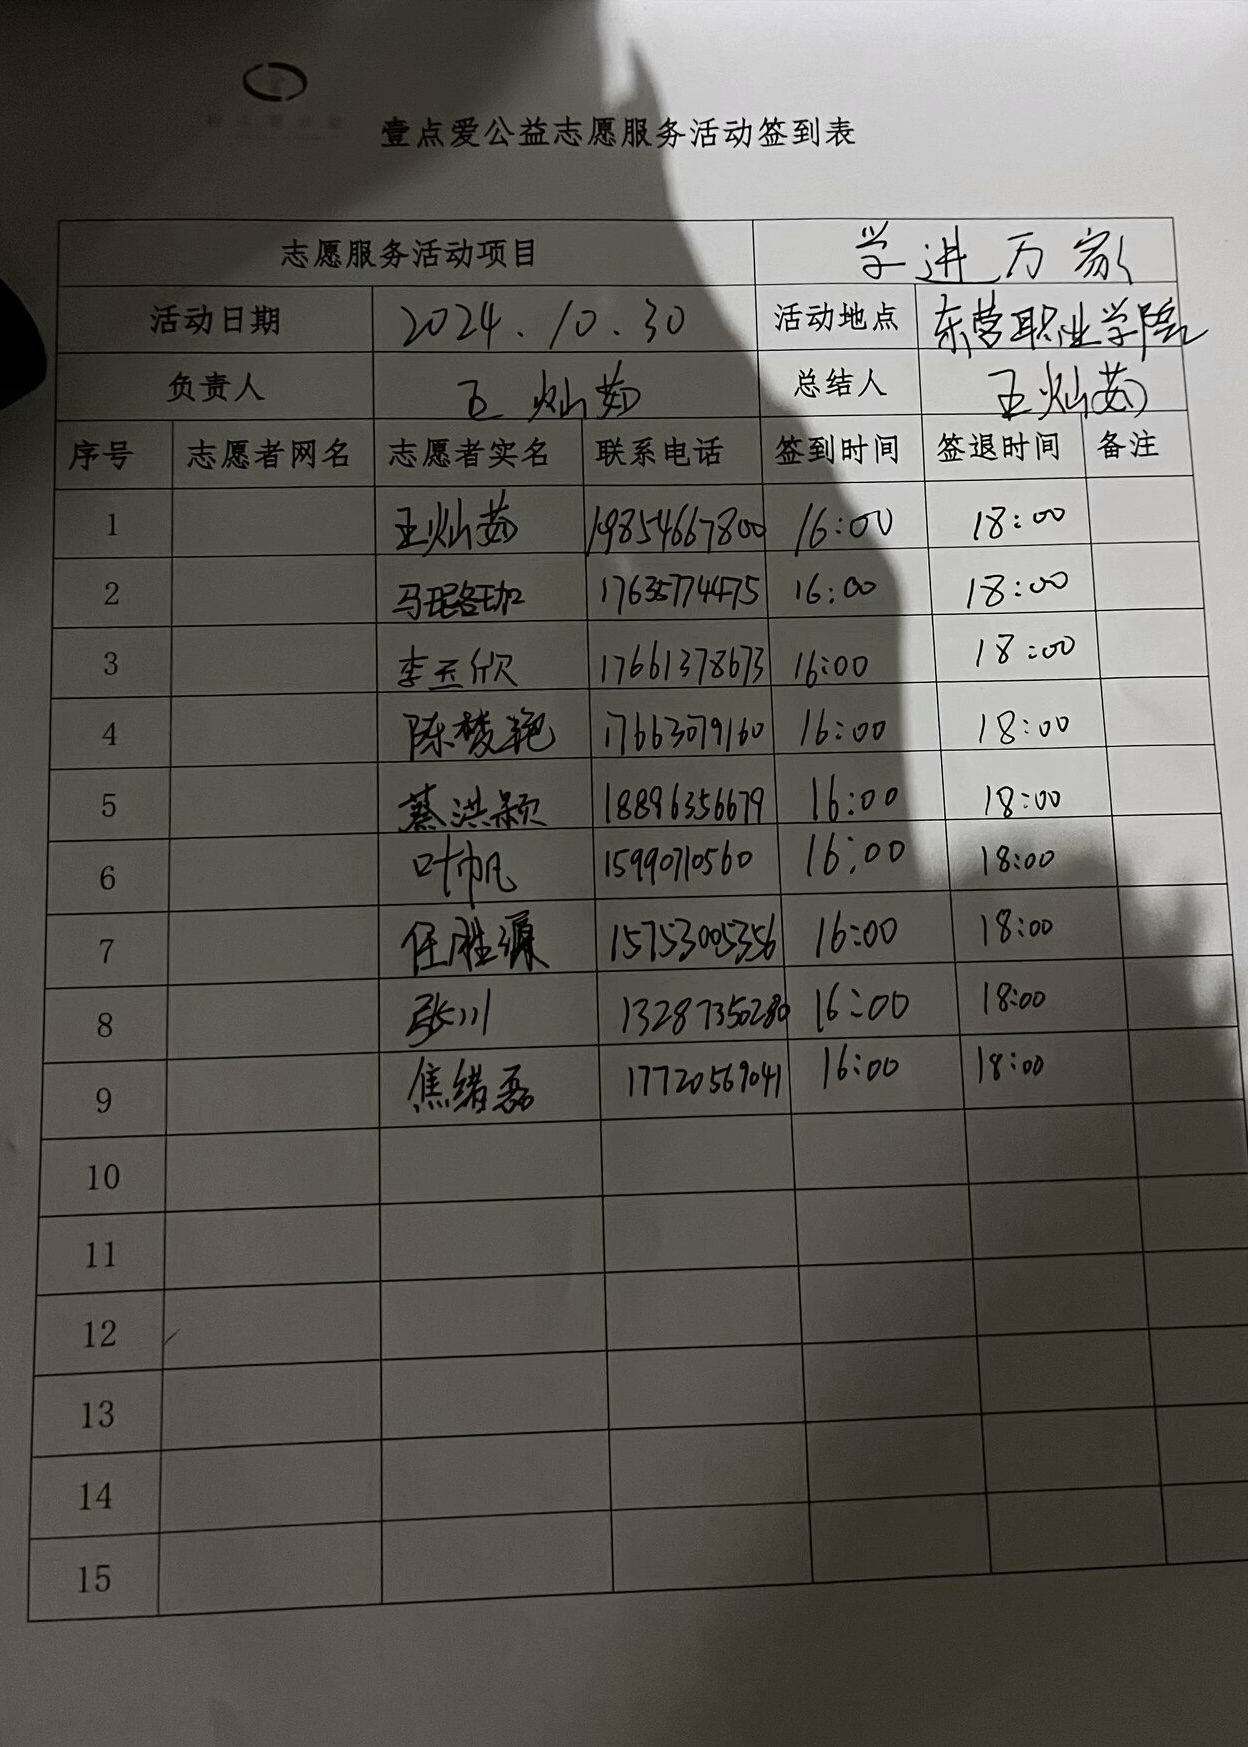 壹点爱公益志愿服务活动签到表
志愿服务活动项目 学进万家
活动日期 2024.10.30 活动地点 东营职业学院
负责人 王灿茹 总结人 王灿茹
序号 志愿者网名 志愿者实名 联系电话 签到时间 签退时间 备注
1 王灿茹 19854667800 16:00 18:00
2 17635774475 16:00 18:00
3 李玉欣 17661378673 16:00 18:00
4 陈梦艳 17663079160 16:00 18:00
5 蔡洪颖 18896356679 16:00 18:00
6 叶帆 15990710560 16:00 18:00
7 任胜源 15753005356 16:00 18:00
8 张川 13287350280 16:00 18:00
9 焦绪磊 17720569041 16:00 18:00
10
11
12
13
14
15